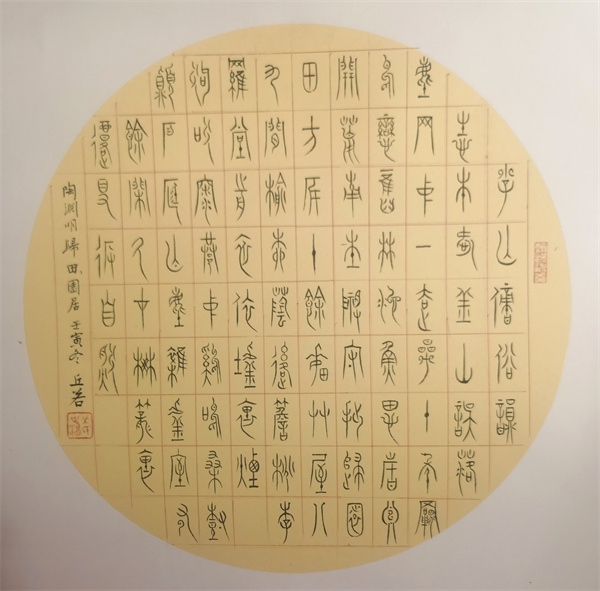 少無適俗韻
性本愛丘山誤落
塵網中一去三十年羈
鳥戀舊林池魚思故淵
開荒南野際守拙歸園
田方宅十餘畝草屋八
九間榆柳蔭後簷桃李
羅堂前依依墟里煙
狗吠深巷中雞鳴桑樹
顛戶庭無塵雜虛室有
餘閒久在樊籠裏
復得返自然
陶淵明歸田園居 壬寅冬 丘若